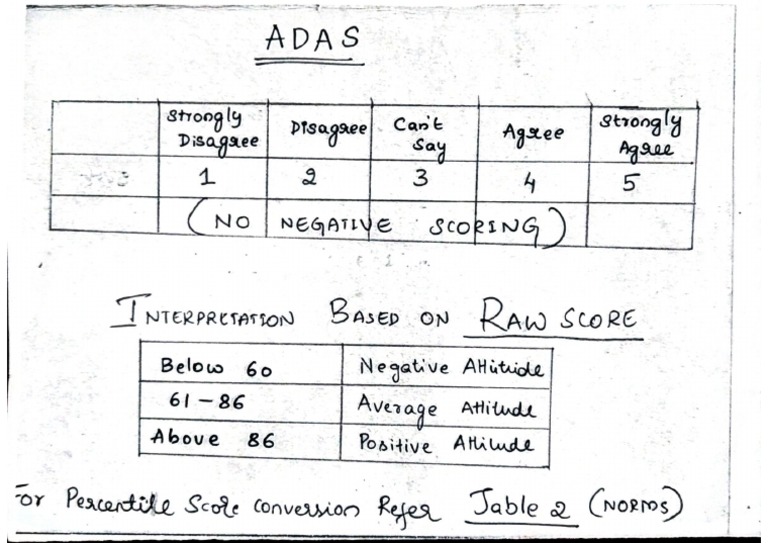 ADAS
Strongly Disagree Disagree Can't Say Agree Strongly Agree
1 2 3 4 5
(NO NEGATIVE SCORING)
INTERPRETATION BASED ON RAW SCORE
Below 60 Negative Attitude
61 - 86 Average Attitude
Above 86 Positive Attitude
For Percentile Score conversion Refer Table 2 (NORMS)